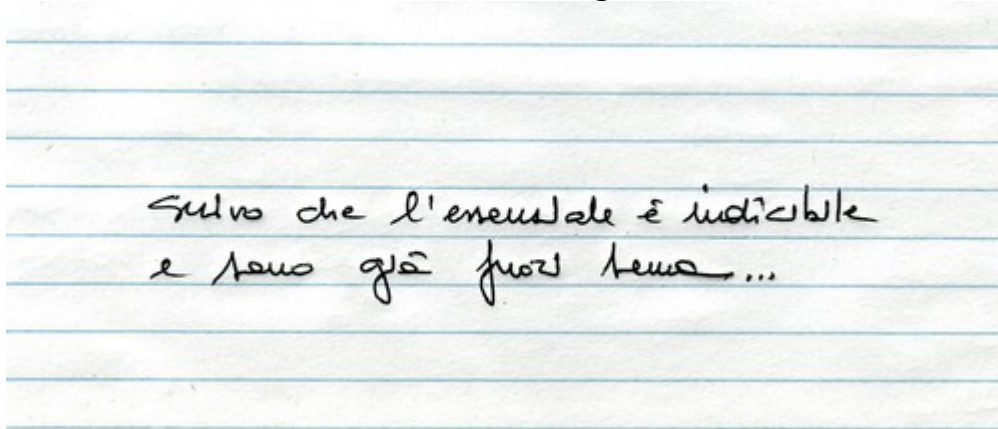 scrivo che l'essenziale è indicibile
e sono già fuori tema...